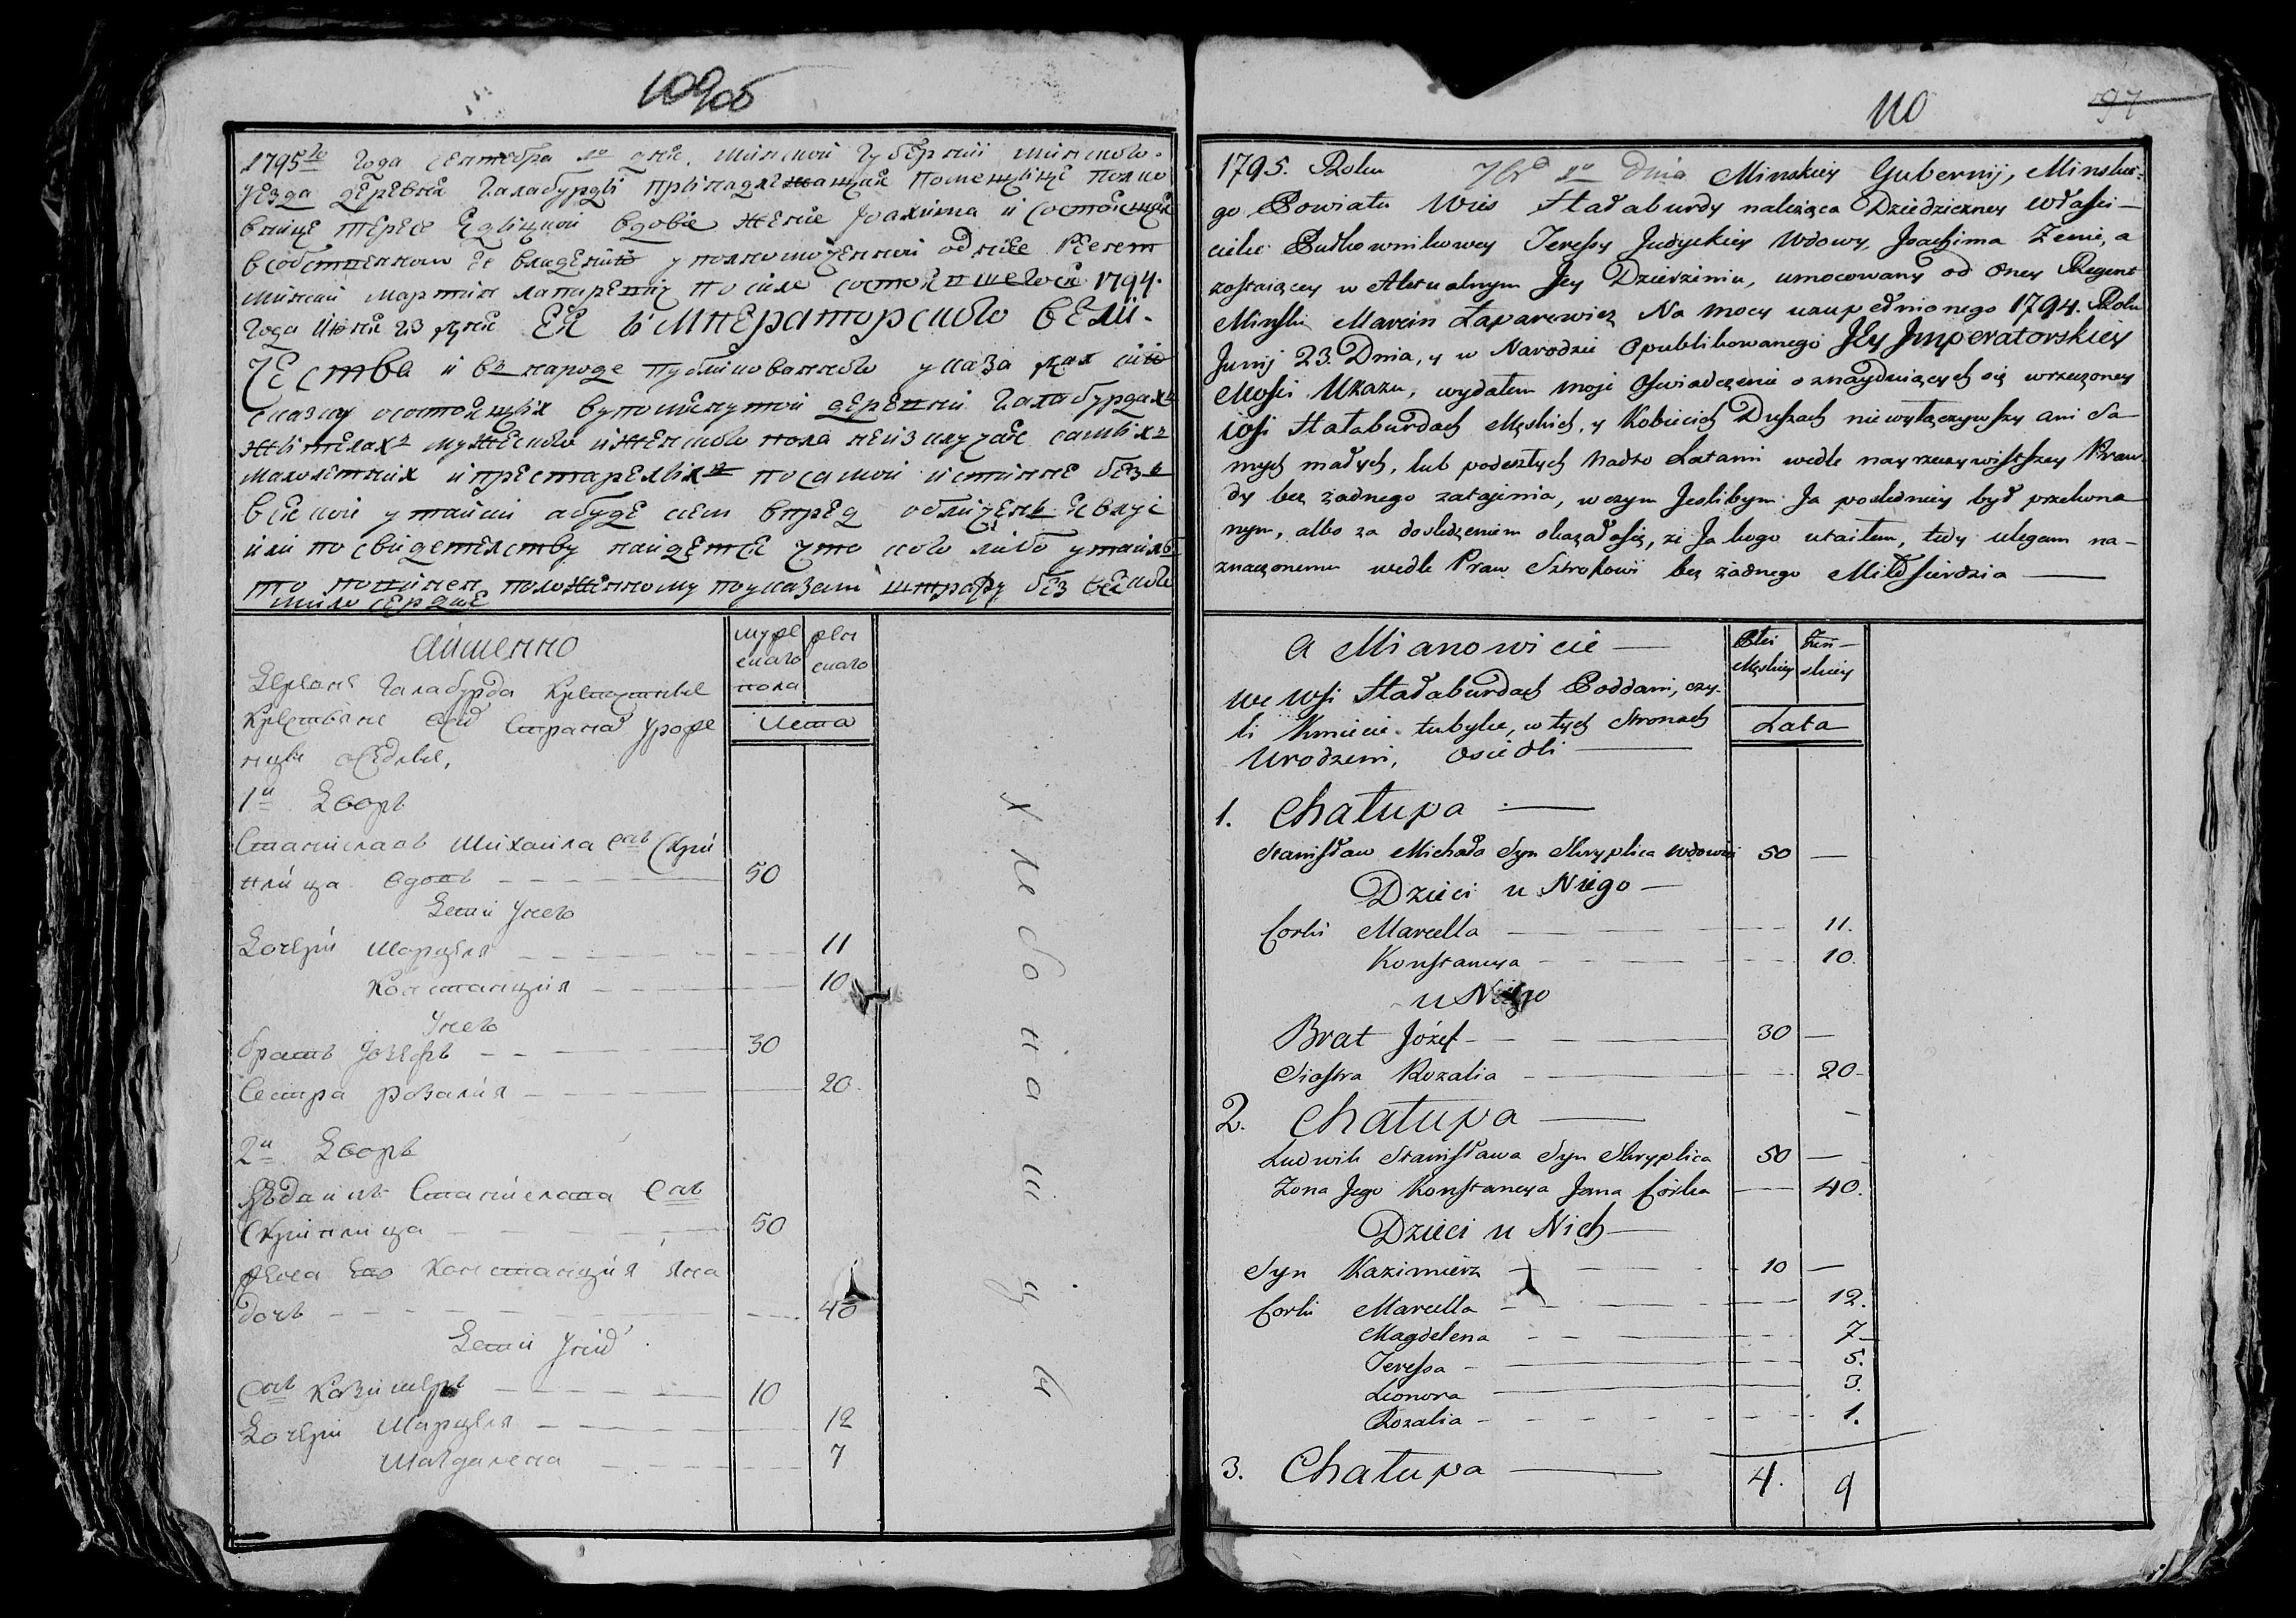 109об
1795го года сентебра 10 дня. минской губернии минсково
уезда деревня Галабурды принадлежащия помещице полко
внице тересе едицкой вдове жене Іоахима и состоящая
в собственном ее владении уполномоченной од нее Реент
минский мартин лапаревич по силе состоявшегося 1794.
года июня 23 дня ЕЯ ИМПЕРаторскаго ВЕЛИ-
ЧЕСТВа и в народе публикованного указа дал сию
скаску о состоящих в упомянутой деревни Галабурдахъ
жителахъ мужеского и женского пола неизключае самыхъ
малолетних и престарелыхъ по самой истинне безъ
всякой утайки а буде кем впред обличенъ явлус
или по свидетелству найдется что кого либо утаилъ
то повинен положенному по указам штрафу без всякого
мило сердие
а имянно
муже скаго пола
жен скаго
Лета
Деревне Галабурда
Крестьяне сей стране уроже
нцы
1й Дворъ
Станиславъ Михаила снъ Скри
плица вдовъ — 50
Дети у нево
Дочери Марцеля — 11
Констанция — 10
У нево
братъ Іозефъ — 30
Сестра розалия — 20
2й Дворъ
Станислава снъ
Скриплица — 50
жена ево Констанция Яна
дочь — 40
Дети у них
снъ Казимеръ — 10
Дочери Марцеля — 12
Магдалена — 7
110
97
1795. Roku 7br 10 Dnia Minskiey Gubernij, Minskie-
go Powiatu Wieś Haładurdy należąca Dziedziczney Właści-
cielce Pułkownikowey Teressy Judyckiey Wdowy, Joachima Żenie, a
zostaiącey w Aktualnym Jey Dzierżeniu, umocowany od Oney Regent
Minski Marcin Łaparewicz Na mocy uzupełnionego 1794. Roku
Junij 23. Dnia, y w Narodzie Opublikowanego JEy Jmperatorskiey
Mości Ukazu, wydałem moje Oświadczenie o znaydujących się w rzeczoney
wsi Hałaburdach Męskich, y Kobiecich Duszach nie wyłączywszy ani Sa
mych małych, lub podeszłych Nadto Latami wedle nayrzeczywistszey Praw-
dy bez żadnego zatajenia, w czym Jeslibym Ja posledniey był przekona
nym, albo za dosledzeniem okazałosię, że Ja kogo utaiłem, tedy ulegam na-
znaczonemu wedle Praw Sztrofowi bez żadnego Miłosierdzia —
A Mianowicie —
Płci Męskiey
Żeń- skiey
Lata
we Wsi Hałaburdach Poddani, czy-
li Kmiecie tubylce, w tych Stronach
Urodzeni, Osiedli —
1. Chałupa —
Stanisław Michała Syn Skryplica Wdowiec 50 —
Dzieci u Niego —
Corki Marcella — 11.
Konstancya — 10.
u Niego
Brat Józef — 30 —
Siostra Rozalia — 20
2. Chałupa —
Ludwik Stanisława Syn Skryplica 50 —
Zona Jego Konstancya Jana Córka — 40.
Dzieci u Nich —
Syn Kazimierz — 10 —
Corki Marcella — 12.
Magdelena — 7
Teressa — 5.
Leonora — 3.
Rozalia — 1.
3. Chałupa — 4. 9